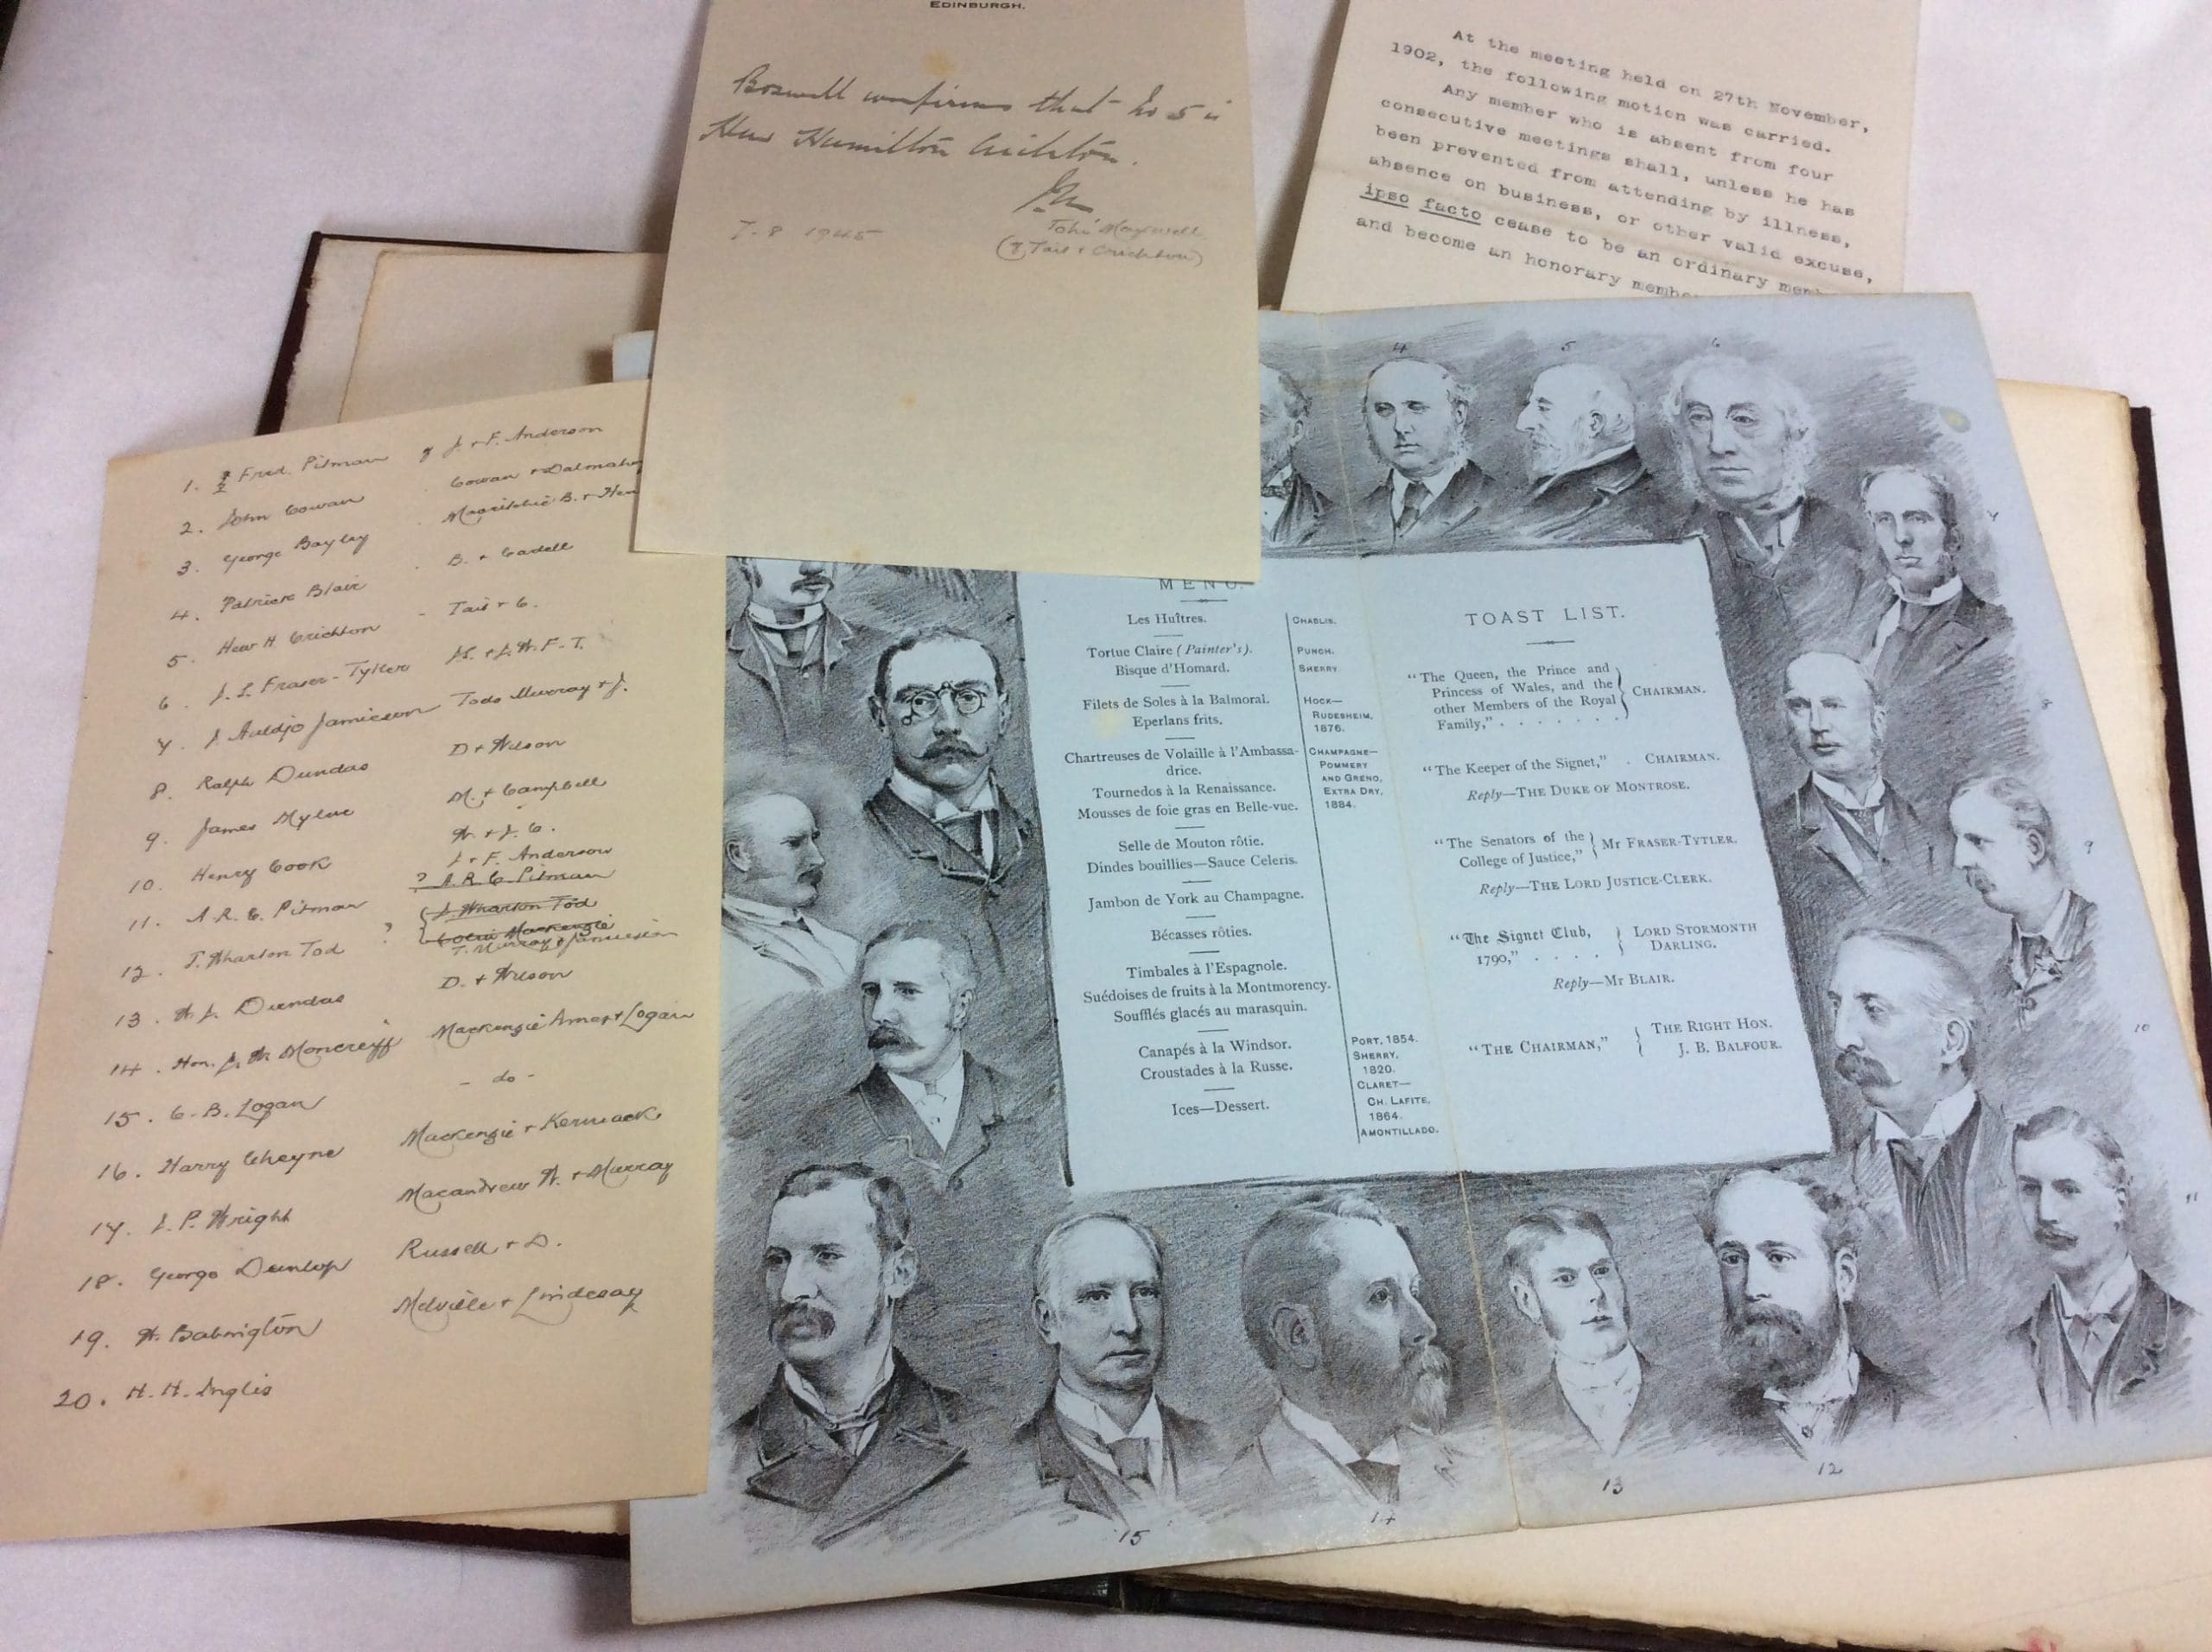 EDINBURGH.
Boswell confirms that No 5 is
Hew Hamilton Crichton.
7.8 1945
John Maxwell
(of Tait + Crichton)
At the meeting held on 27th November,
1902, the following motion was carried.
Any member who is absent from four
consecutive meetings shall, unless he has
been prevented from attending by illness,
absence on business, or other valid excuse,
ipso facto cease to be an ordinary
and become an honorary
1. ? Fred. Pitman of J. + F. Anderson
2. John Cowan Cowan + Dalmahoy
3. George Bayley Macritchie B. + Hen
4. Patrick Blair B. + Cadell
5. Hew H Crichton - Tait + C.
6. J. S. Fraser-Tytler + J. W. F-T.
7. J. Auldjo Jamieson Tods Murray + J.
8. Ralph Dundas D + Wilson
9. James Mylne M. + Campbell
10. Henry Cook W. + J. C.
J + F. Anderson
11. A. R. C. Pitman ? A. R. C. Pitman
12. J. Wharton Tod ? { J. Wharton Tod
Colin Mackenzie
T. Murray + Jamieson
13. W. J. Dundas D. + Wilson
14. Hon. J. W. Moncreiff Mackenzie Innes + Logan
15. C. B. Logan - do -
16. Harry Cheyne Mackenzie + Kermack
17. J. P. Wright Macandrew W. + Murray
18. George Dunlop Russell + D.
19. W. Babington Melville + Lindesay
20. H. H. Inglis
4 5 6
7
8
9
10
11
12
13
14
15
MENU.
Les Huîtres.
CHABLIS.
Tortue Claire (Painter's).
PUNCH.
Bisque d'Homard.
SHERRY.
Filets de Soles à la Balmoral.
Eperlans frits.
HOCK—
RUDESHEIM,
1876.
Chartreuses de Volaille à l'Ambassa-
drice.
Tournedos à la Renaissance.
Mousses de foie gras en Belle-vue.
CHAMPAGNE—
POMMERY
AND GRENO,
EXTRA DRY,
1884.
Selle de Mouton rôtie.
Dindes bouillies—Sauce Celeris.
Jambon de York au Champagne.
Bécasses rôties.
Timbales à l'Espagnole.
Suédoises de fruits à la Montmorency.
Soufflés glacés au marasquin.
Canapés à la Windsor.
Croustades à la Russe.
Ices—Dessert.
PORT, 1854.
SHERRY,
1820.
CLARET—
CH. LAFITE,
1864.
AMONTILLADO.
TOAST LIST.
"The Queen, the Prince and
Princess of Wales, and the
other Members of the Royal
Family," . . . . . . . } CHAIRMAN.
"The Keeper of the Signet," . CHAIRMAN.
Reply—THE DUKE OF MONTROSE.
"The Senators of the
College of Justice," } MR FRASER-TYTLER.
Reply—THE LORD JUSTICE-CLERK.
"The Signet Club,
1790," . . . . } LORD STORMONTH
DARLING.
Reply—MR BLAIR.
"THE CHAIRMAN," { THE RIGHT HON.
J. B. BALFOUR.